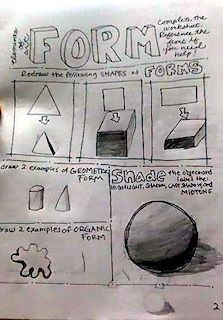 elements of art
FORM
Complete the
worksheet.
Reference the
front if
you need
help!
Redraw the following SHAPES as FORMS
draw 2 examples of GEOMETRIC
FORM
Shade the object and
label the:
HIGHLIGHT, SHADOW, CAST SHADOW, and
MIDTONE
raw 2 examples of ORGANIC
FORM
2